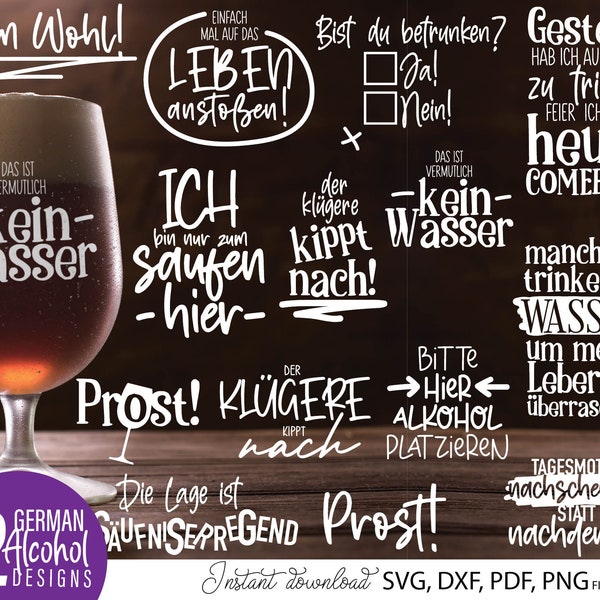 m Wohl!
EINFACH
MAL AUF DAS
LEBEN
anstoßen!
Bist du betrunken?
Ja!
Nein!
Geste
HAB ICH AU
zu tri
FEIER ICH
heu
COMEB
DAS IST
VERMUTLICH
kein
Wasser
ICH
bin nur zum
saufen
-hier-
der
klügere
kippt
nach!
DAS IST
VERMUTLICH
-kein-
Wasser
manch
trinke
WASS
um me
Leber
überras
Prost!
DER
KLÜGERE
KIPPT
nach
BITTE
HIER
ALKOHOL
PLATZIEREN
Die Lage ist
SÄUFNISERREGEND
Prost!
TAGESMOT
nachsche
STATT
nachde
2 GERMAN
Alcohol
DESIGNS
Instant download SVG, DXF, PDF, PNG FI